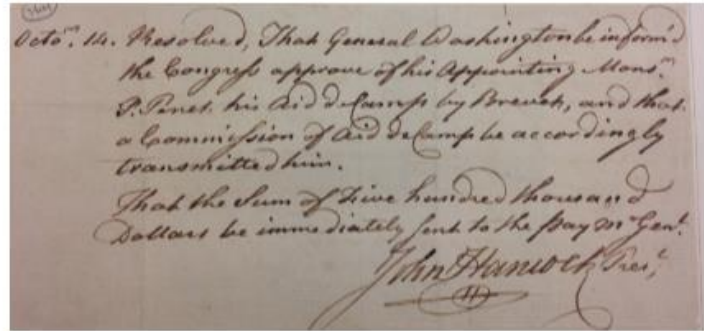 Octor. 14. Resolved, That General Washington be inform'd
the Congress approve of his Appointing Monsr.
P. Penet. his Aid de Camp by Brevet, and that
a Commission of Aid de Camp be accordingly
transmitted him.
That the Sum of Five hundred thousand
Dollars be immediately sent to the Pay Mr. Genl.
John Hancock Presit.